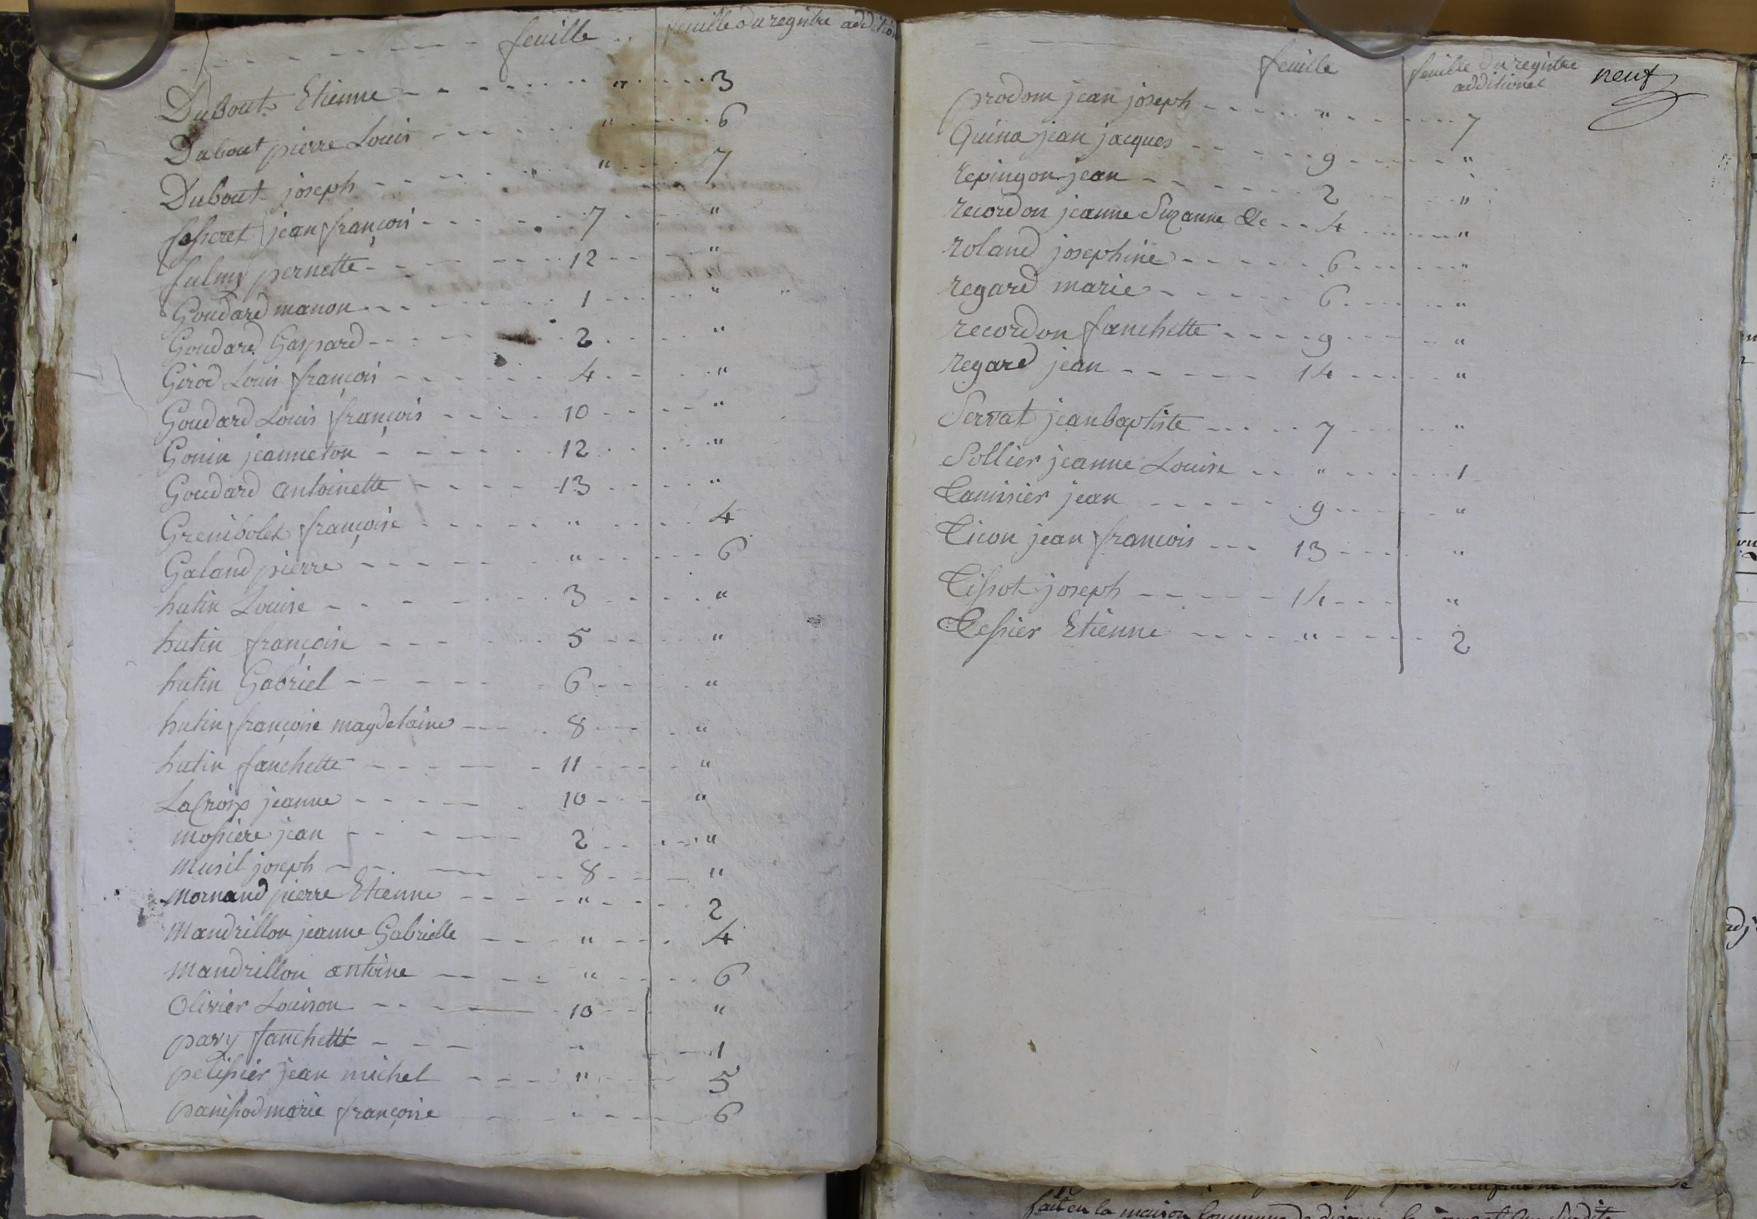 feuille feuille du registre addition
Dubout Etienne " 3
Dubout pierre Louis " 6
Dubout joseph " 7
fesseret jean françois 7 "
fulmy pernette 12 "
Goudard manon 1 "
Goudard Gaspard 2 "
Girod Louis françois 4 "
Goudard Louis françois 10 "
Gonin jeanneton 12 "
Goudard antoinette 13 "
Grenibolet françoise " 4
Galand pierre " 6
hutin Louise 3 "
hutin françoise 5 "
hutin Gabriel 6 "
hutin françoise magdelaine 8 "
hutin fanchette 11 "
LaCroix jeanne 10 "
mossiere jean 2 "
musil joseph 8 "
mornand pierre Etienne " 2
mandrillon jeanne Gabrielle " 4
mandrillon antoine " 6
Olivier Louison 10 "
pavy fanchette " 1
pelissier jean michel " 5
panissod marie françoise " 6
feuille feuille du registre additionel neuf
prodom jean joseph " 7
Quina jean jacques 9 "
repingon jean 2 "
recordon jeanne Suzanne &c 4 "
roland josephine 6 "
regard marie 6 "
recordon fanchette 9 "
regard jean 14 "
Servat jean baptiste 7 "
Sollier jeanne Louise " 1
Tamisier jean 9 "
Ticon jean francois 13 "
Tissot joseph 14 "
Tessier Etienne " 2
fait en la maison Commune de